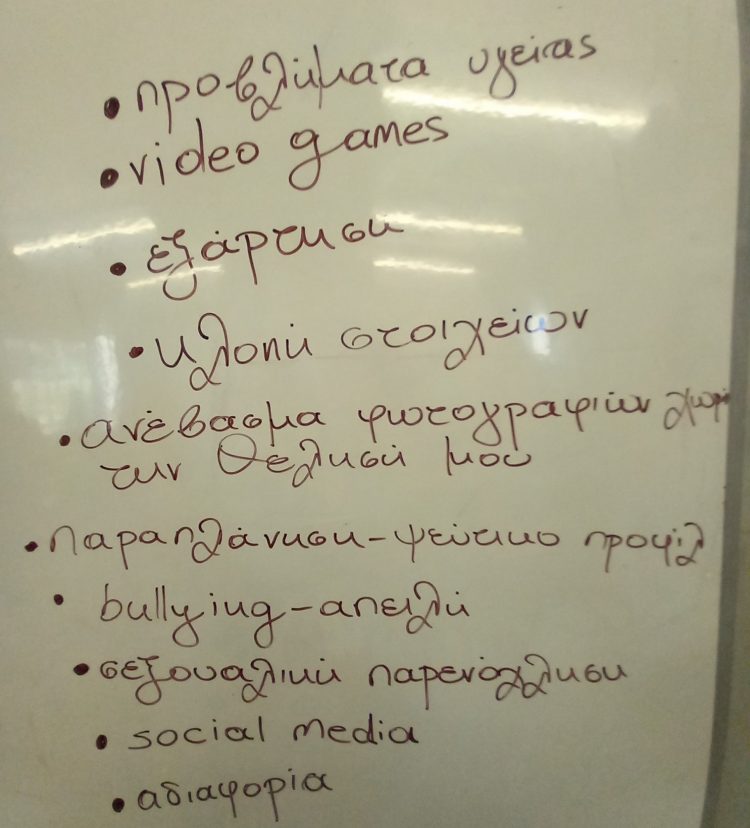 • προβλήματα υγείας
• video games
• εξάρτηση
• κλοπή στοιχείων
• ανέβασμα φωτογραφιών χωρί
την θέλησή μου
• παραπλάνηση - ψεύτικο προφίλ
• bullying - απειλή
• σεξουαλική παρενόχληση
• social media
• αδιαφορία